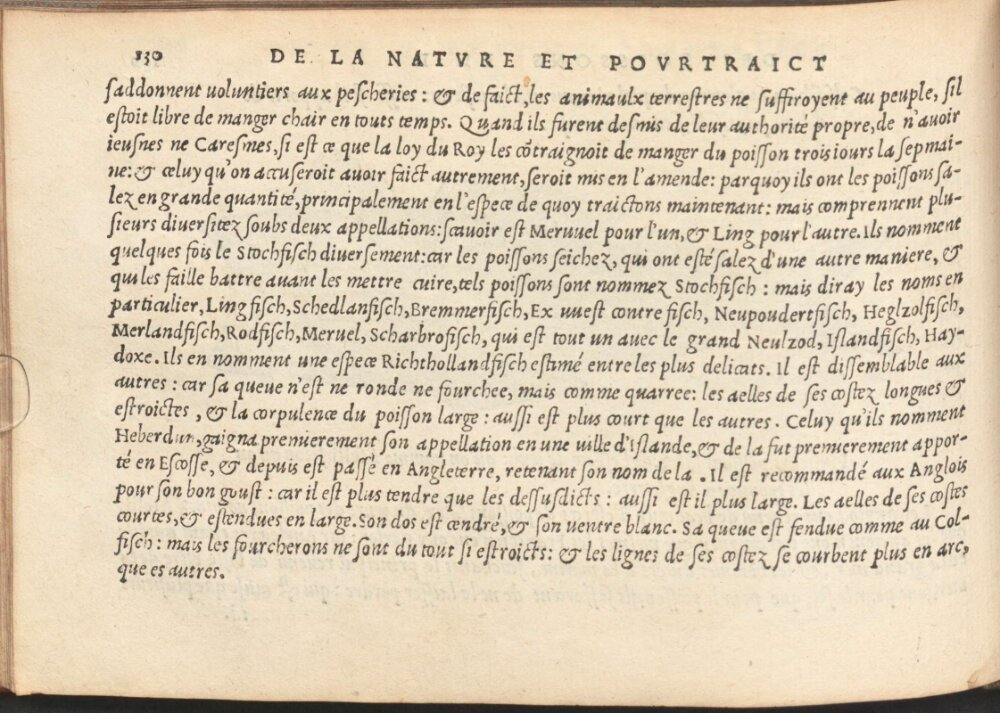 130 DE LA NATVRE ET POVRTRAICT
s'addonnent voluntiers aux pescheries: & de faict, les animaulx terrestres ne suffiroyent au peuple, s'il
estoit libre de manger chair en touts temps. Quand ils furent desmis de leur authorité propre, de n'avoir
ieusnes ne Caresmes, si est ce que la loy du Roy les cõtraignoit de manger du poisson trois iours la sepmai-
ne: & celuy qu'on accuseroit avoir faict autrement, seroit mis en l'amende: parquoy ils ont les poissons sa-
lez en grande quantité, principalement en l'espece de quoy traictons maintenant: mais comprennent plu-
sieurs diversitez soubs deux appellations: scavoir est Meruuel pour l'un, & Ling pour l'autre. Ils nomment
quelques fois le Stochfisch diversement: car les poissons seichez, qui ont esté salez d'une autre maniere, &
qui les faille battre auant les mettre cuire, tels poissons sont nommez Stochfisch: mais diray les noms en
particulier, Lingfisch, Schedlanfisch, Bremmerfisch, Ex uuest contre fisch, Neupoudertfisch, Heglzolfisch,
Merlandfisch, Rodfisch, Meruel, Scharbrofisch, qui est tout un avec le grand Neulzod, Islandfisch, Hay-
doxe. Ils en nomment une espece Richthollandfisch estimé entre les plus delicats. Il est dissemblable aux
autres: car sa queue n'est ne ronde ne fourchee, mais comme quarree: les aelles de ses costez longues &
estroictes, & la corpulence du poisson large: aussi est plus court que les autres. Celuy qu'ils nomment
Heberdun, gaigna premierement son appellation en une ville d'Islande, & de la fut premierement appor-
té en Escosse, & depuis est passé en Angleterre, retenant son nom de la. Il est recommandé aux Anglois
pour son bon goust: car il est plus tendre que les dessusdicts: aussi est il plus large. Les aelles de ses costes
courtes, & estendues en large. Son dos est cendré, & son ventre blanc. Sa queue est fendue comme au Col-
fisch: mais les fourcherons ne sont du tout si estroicts: & les lignes de ses costez se courbent plus en arc,
que es autres.